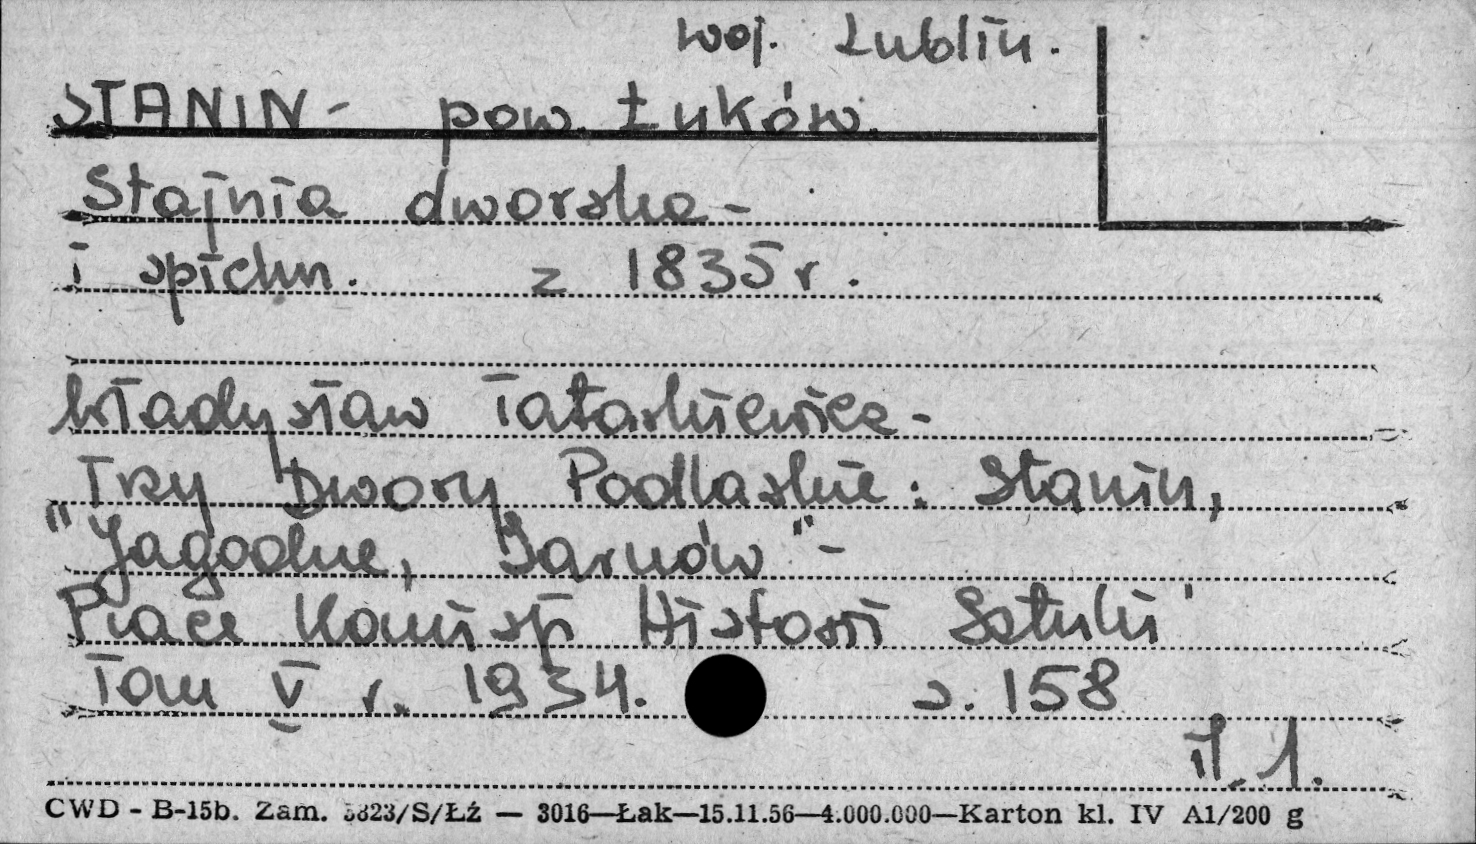 woj. Lublin.
STANIN - pow. Łuków.
Stajnia dworska -
i spichn. z 1835 r.
Władysław Tatarkiewicz -
Trzy Dwory Podlaskie: Stanin,
"Jagodne, Jarnów" -
Prace Komisji Historii Sztuki
Tom V r. 1934. s. 158
il. 1.
CWD - B-15b. Zam. 5823/S/Łź — 3016—Łak—15.11.56—4.000.000—Karton kl. IV A1/200 g